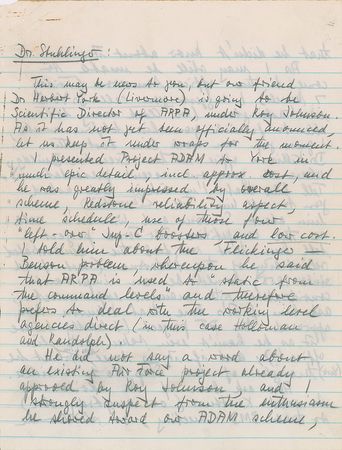 Dr. Stuhlinger:
This may be news to you, but our friend
Dr Herbert York (Livermore) is going to be
Scientific Director of ARPA, under Roy Johnson.
As it has not yet been officially anounced,
let us keep it under wraps for the moment.
I presented Project ADAM to York in
"much epic detail", incl approx cost, and
he was greatly impressed by overall
scheme, Redstone reliability aspect,
time schedule, use of those four
"left-over" Jup-C boosters, and low cost.
I told him about the Flickinger –
Benson problem, whereupon he said
that ARPA is used to static from
the command levels" and therefore
prefers to deal with the working level
agencies direct (in this case Holloman
and Randolph).
He did not say a word about
an existing Air Force project already
approved by Roy Johnson, and I
strongly suspect from the enthusiasm
he showed toward our ADAM scheme,